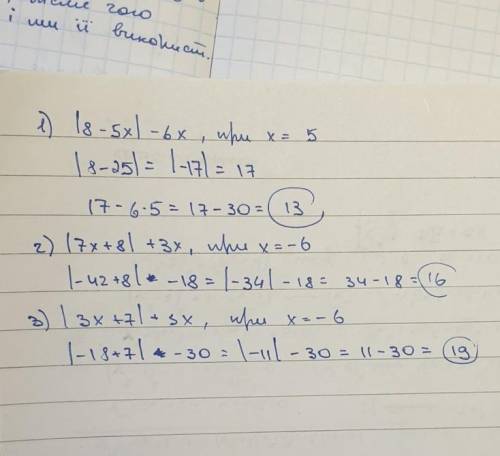 чого
і ми її використ.
1) |8-5x| -6x, при x = 5
|8-25| = |-17| = 17
17 - 6·5 = 17 - 30 = 13
2) |7x+8| +3x, при x = -6
|-42+8| - 18 = |-34| - 18 = 34 - 18 = 16
3) |3x+7| + 5x, при x = -6
|-18+7| - 30 = |-11| - 30 = 11 - 30 = 19